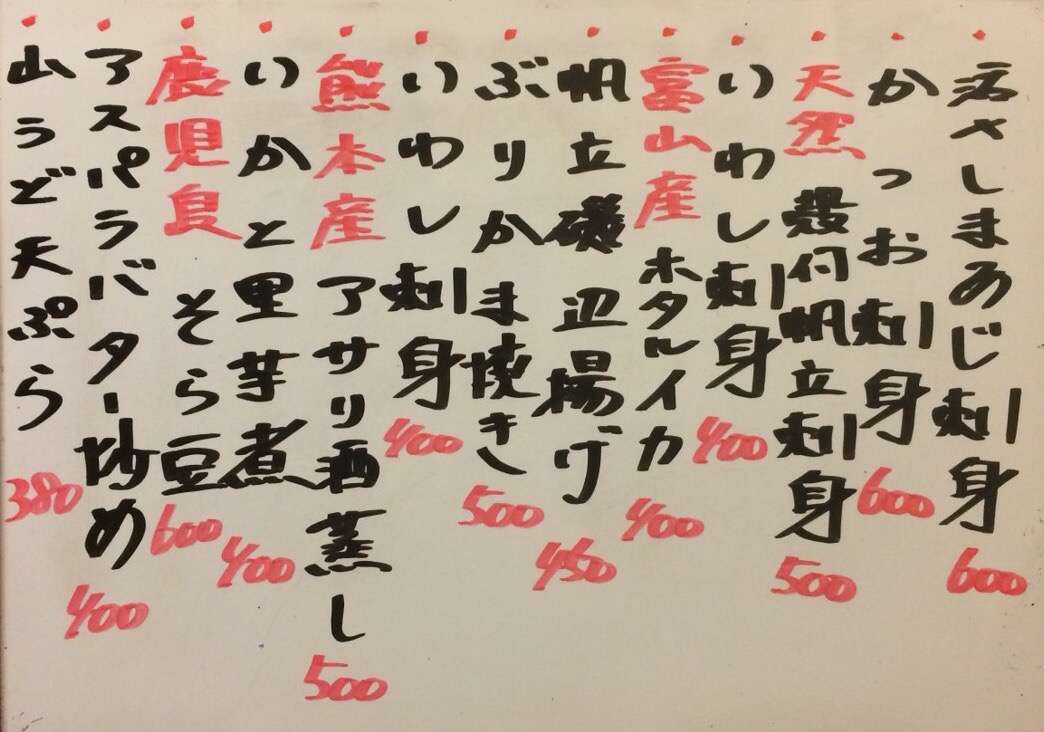 活〆しまあじ刺身 600
かつお刺身 600
天然 殻付帆立刺身 500
いわし刺身 400
富山産 ホタルイカ 400
帆立磯辺揚げ 450
ぶりかま焼き 500
いわし刺身 400
熊本産 アサリ酒蒸し 500
いかと里芋煮 400
鹿児島 そら豆 600
アスパラバター炒め 400
山うど天ぷら 380